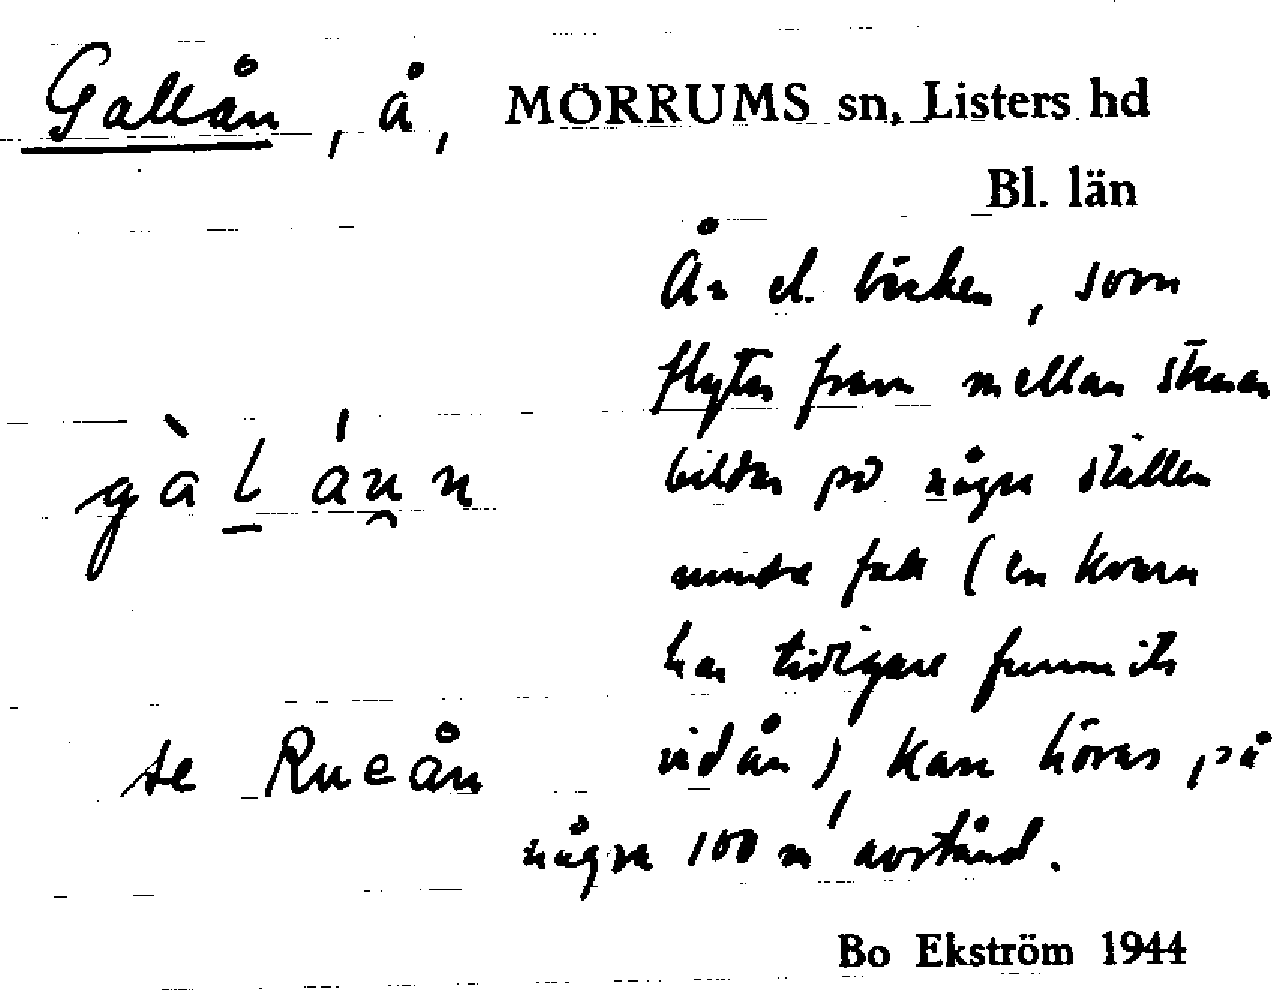 Gallån, å, MÖRRUMS sn, Listers hd
Bl. län
Ån el. bäcken, som
flyter fram mellan stenar
gàl áu̯n
bildar på några ställen
mindre fall (en kvarn
har tidigare funnits
se Rueån
vid ån), kan höras på
några 100 m avstånd.
Bo Ekström 1944